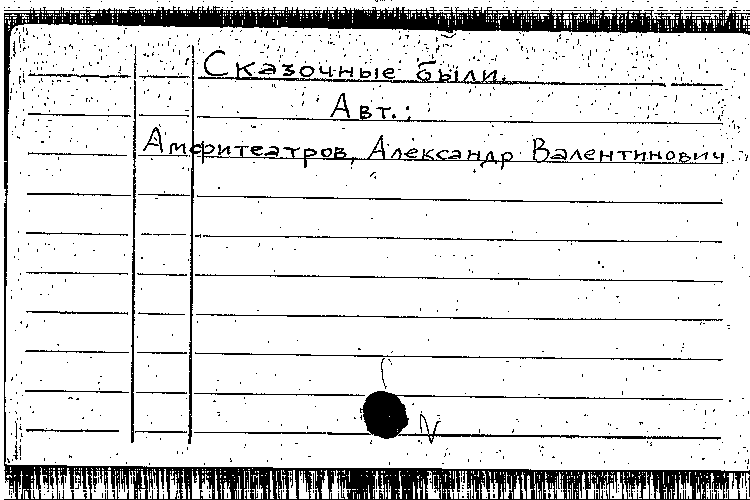 Сказочные были.
Авт.:
Амфитеатров, Александр Валентинович
N